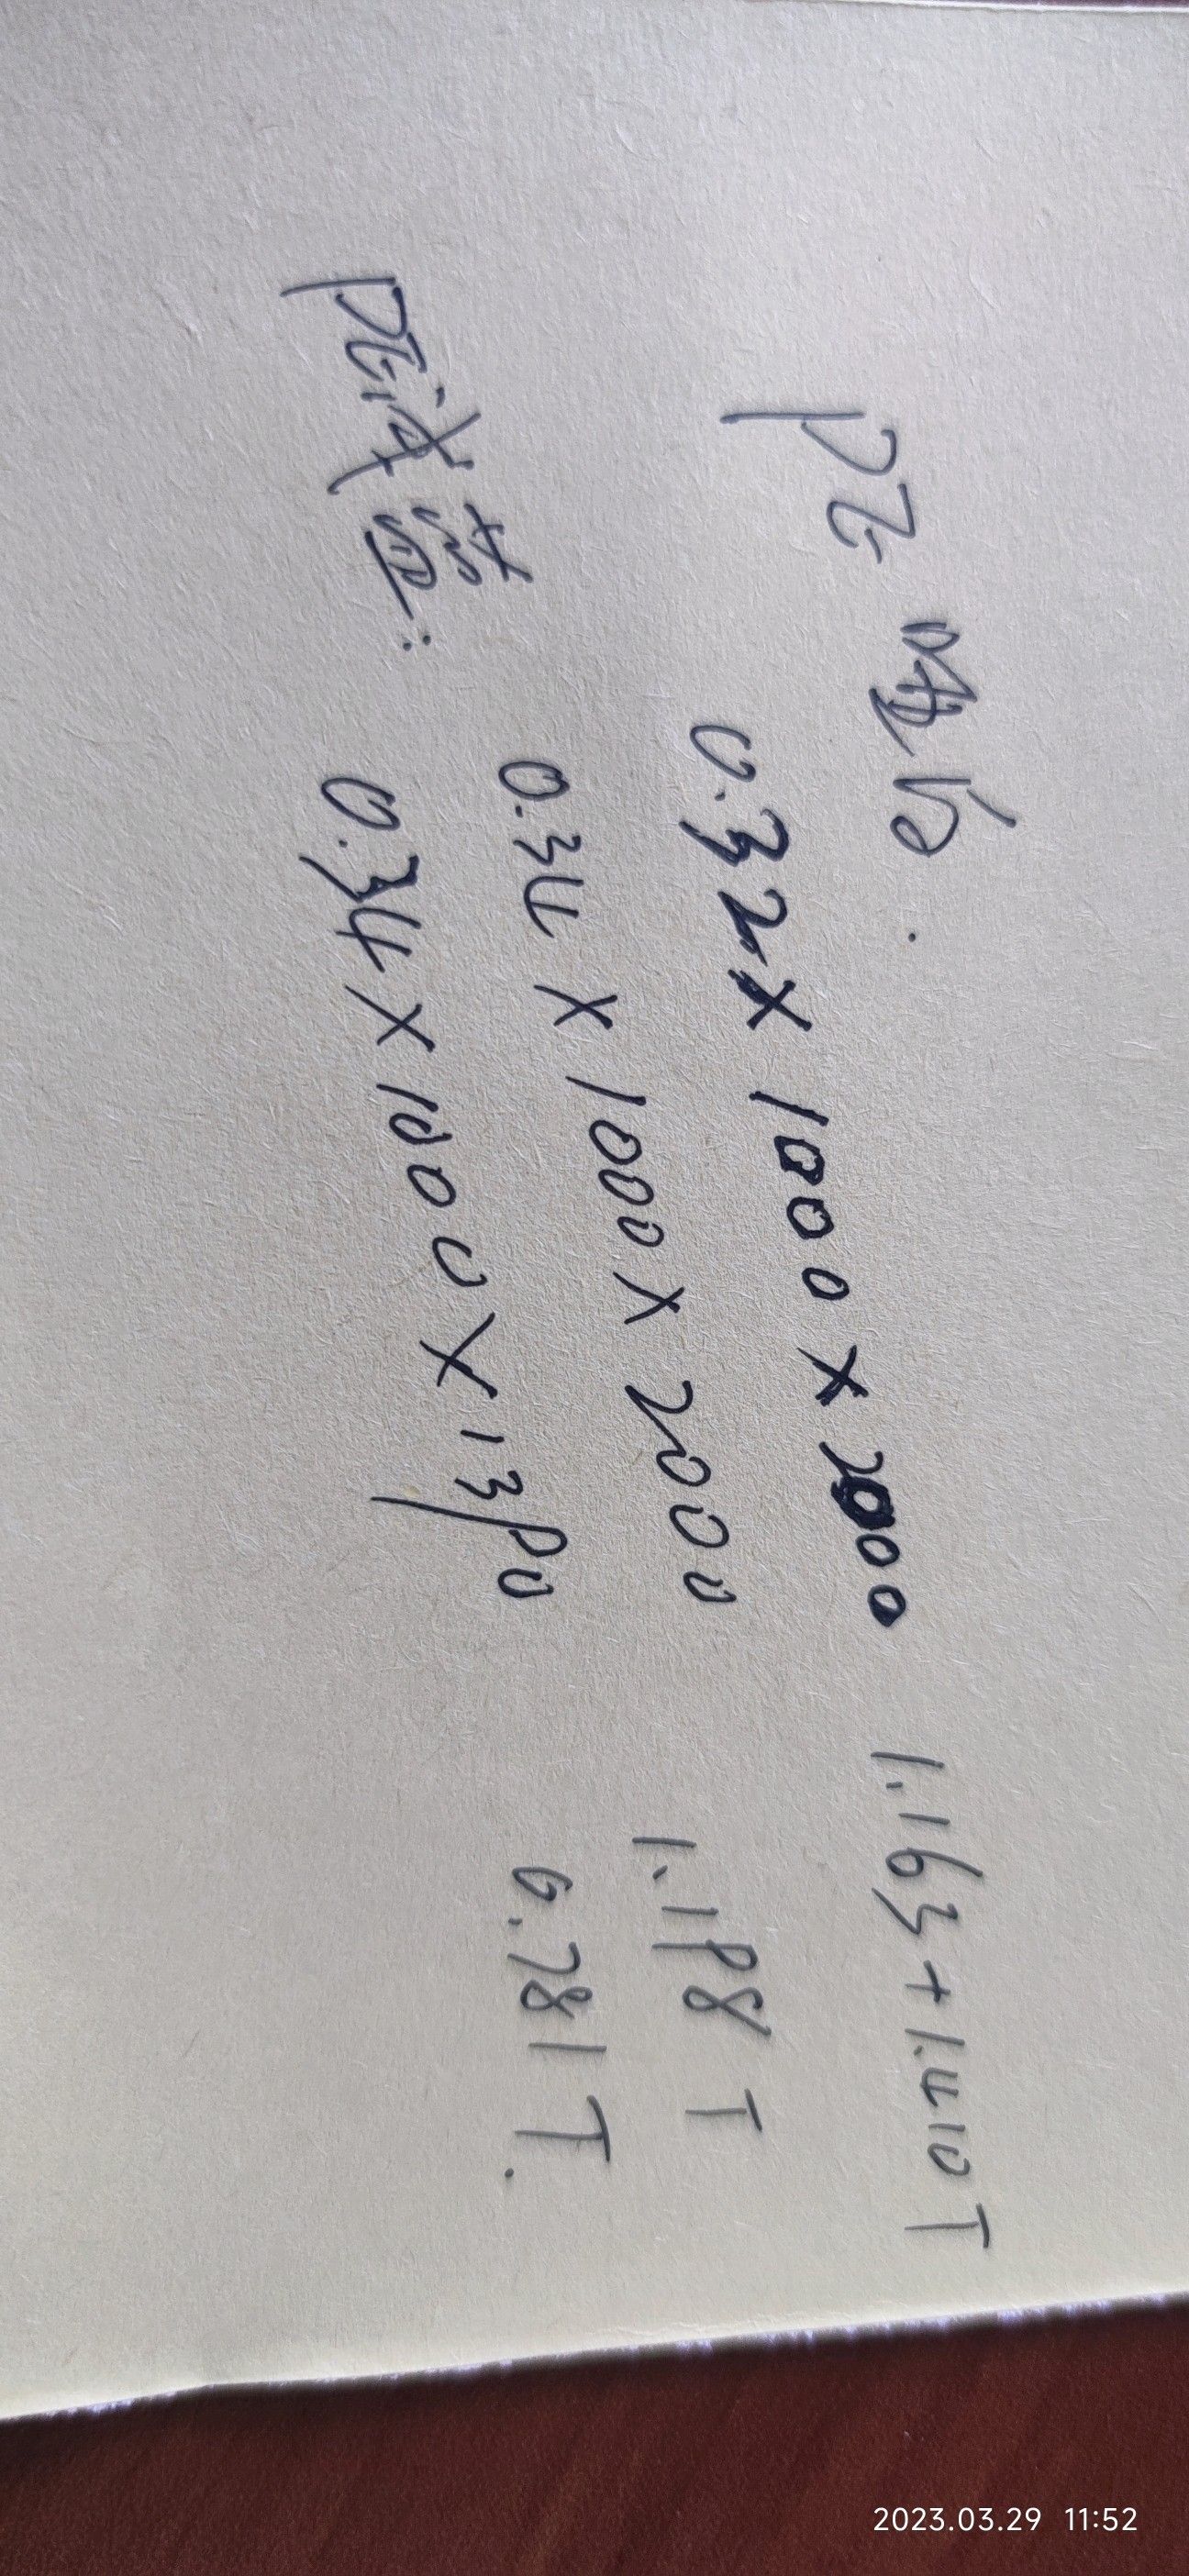 PE 哑白.
0.32X1000X2000 1.163+1.410T
0.34X1000X2000 1.198T
PE浅蓝: 0.34X1000X1390 0.781T.
2023.03.29 11:52